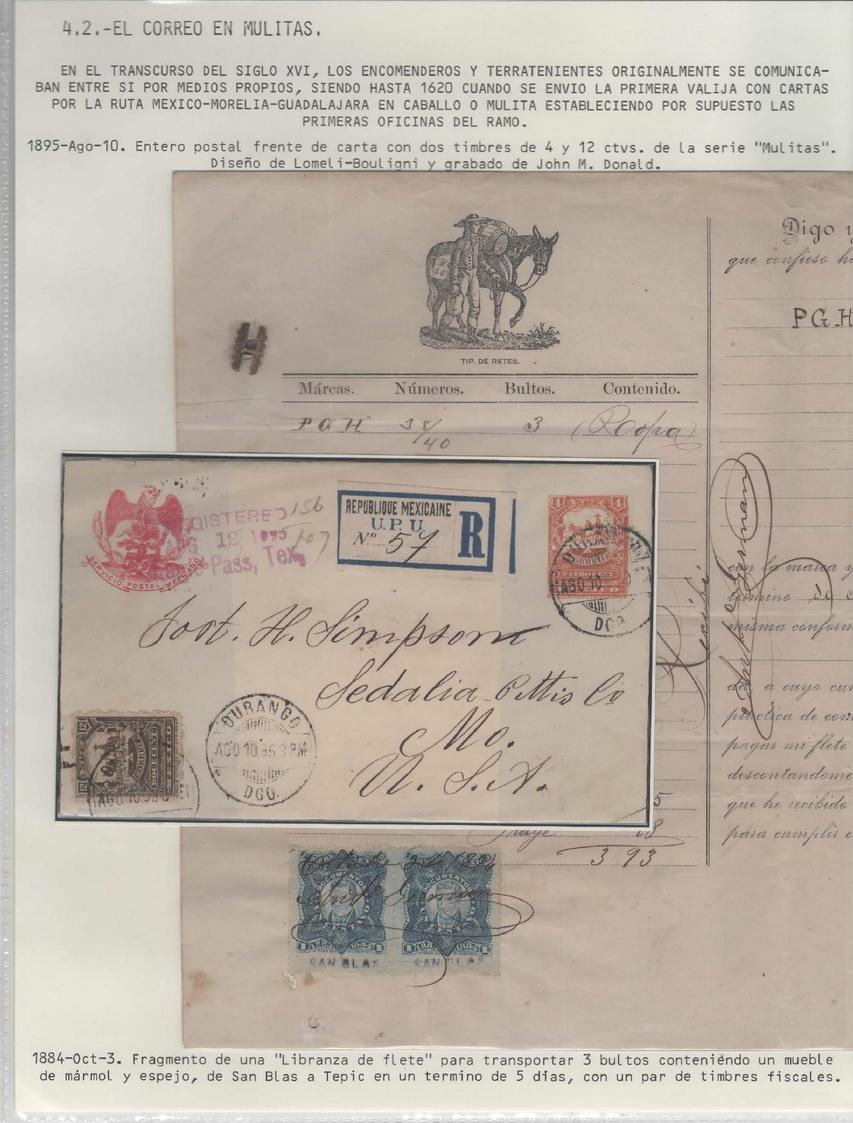 4.2.-EL CORREO EN MULITAS.
EN EL TRANSCURSO DEL SIGLO XVI, LOS ENCOMENDEROS Y TERRATENIENTES ORIGINALMENTE SE COMUNICA-
BAN ENTRE SI POR MEDIOS PROPIOS, SIENDO HASTA 1620 CUANDO SE ENVIO LA PRIMERA VALIJA CON CARTAS
POR LA RUTA MEXICO-MORELIA-GUADALAJARA EN CABALLO O MULITA ESTABLECIENDO POR SUPUESTO LAS
PRIMERAS OFICINAS DEL RAMO.
1895-Ago-10. Entero postal frente de carta con dos timbres de 4 y 12 ctvs. de la serie "Mulitas".
Diseño de Lomeli-Bouligni y grabado de John M. Donald.
TIP. DE RETES.
Márcas. Números. Bultos. Contenido.
PGH 38/40 3 (Ropa)
Digo y
que confieso h
PGH
con la marca y
termino de
misma conform
da, a cuyo cum
práctica de cor
pagar mi flete
descontandome
que he recibido
para cumplir
Recibí
SERVICIO POSTAL MEXICANO
REGISTERED
AUG 12 1895
Pass, Tex.
156
107
REPUBLIQUE MEXICAINE
U.P.U.
No. 57
R
4 4
DURANGO
AGO 10
DGO.
Post. H. Simpson
Sedalia Pettis Co
Mo.
U. S. A.
12 12
12 12
DURANGO
AGO 10 95 3 PM
DGO.
AGO 10 95 3
5
18
3 93
DOCUMENTOS
DOCUMENTOS
SAN BLAS SAN BLAS
1884-Oct-3. Fragmento de una "Libranza de flete" para transportar 3 bultos conteniéndo un mueble
de mármol y espejo, de San Blas a Tepic en un termino de 5 días, con un par de timbres fiscales.